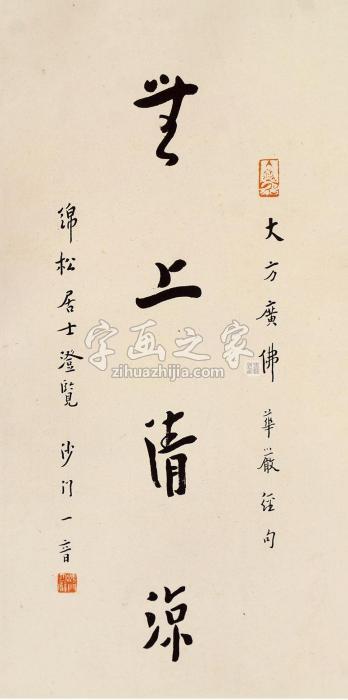 大方廣佛華嚴經句
無上清涼
綿松居士澄覽 沙门一音
字画之家
zihuazhijia.com